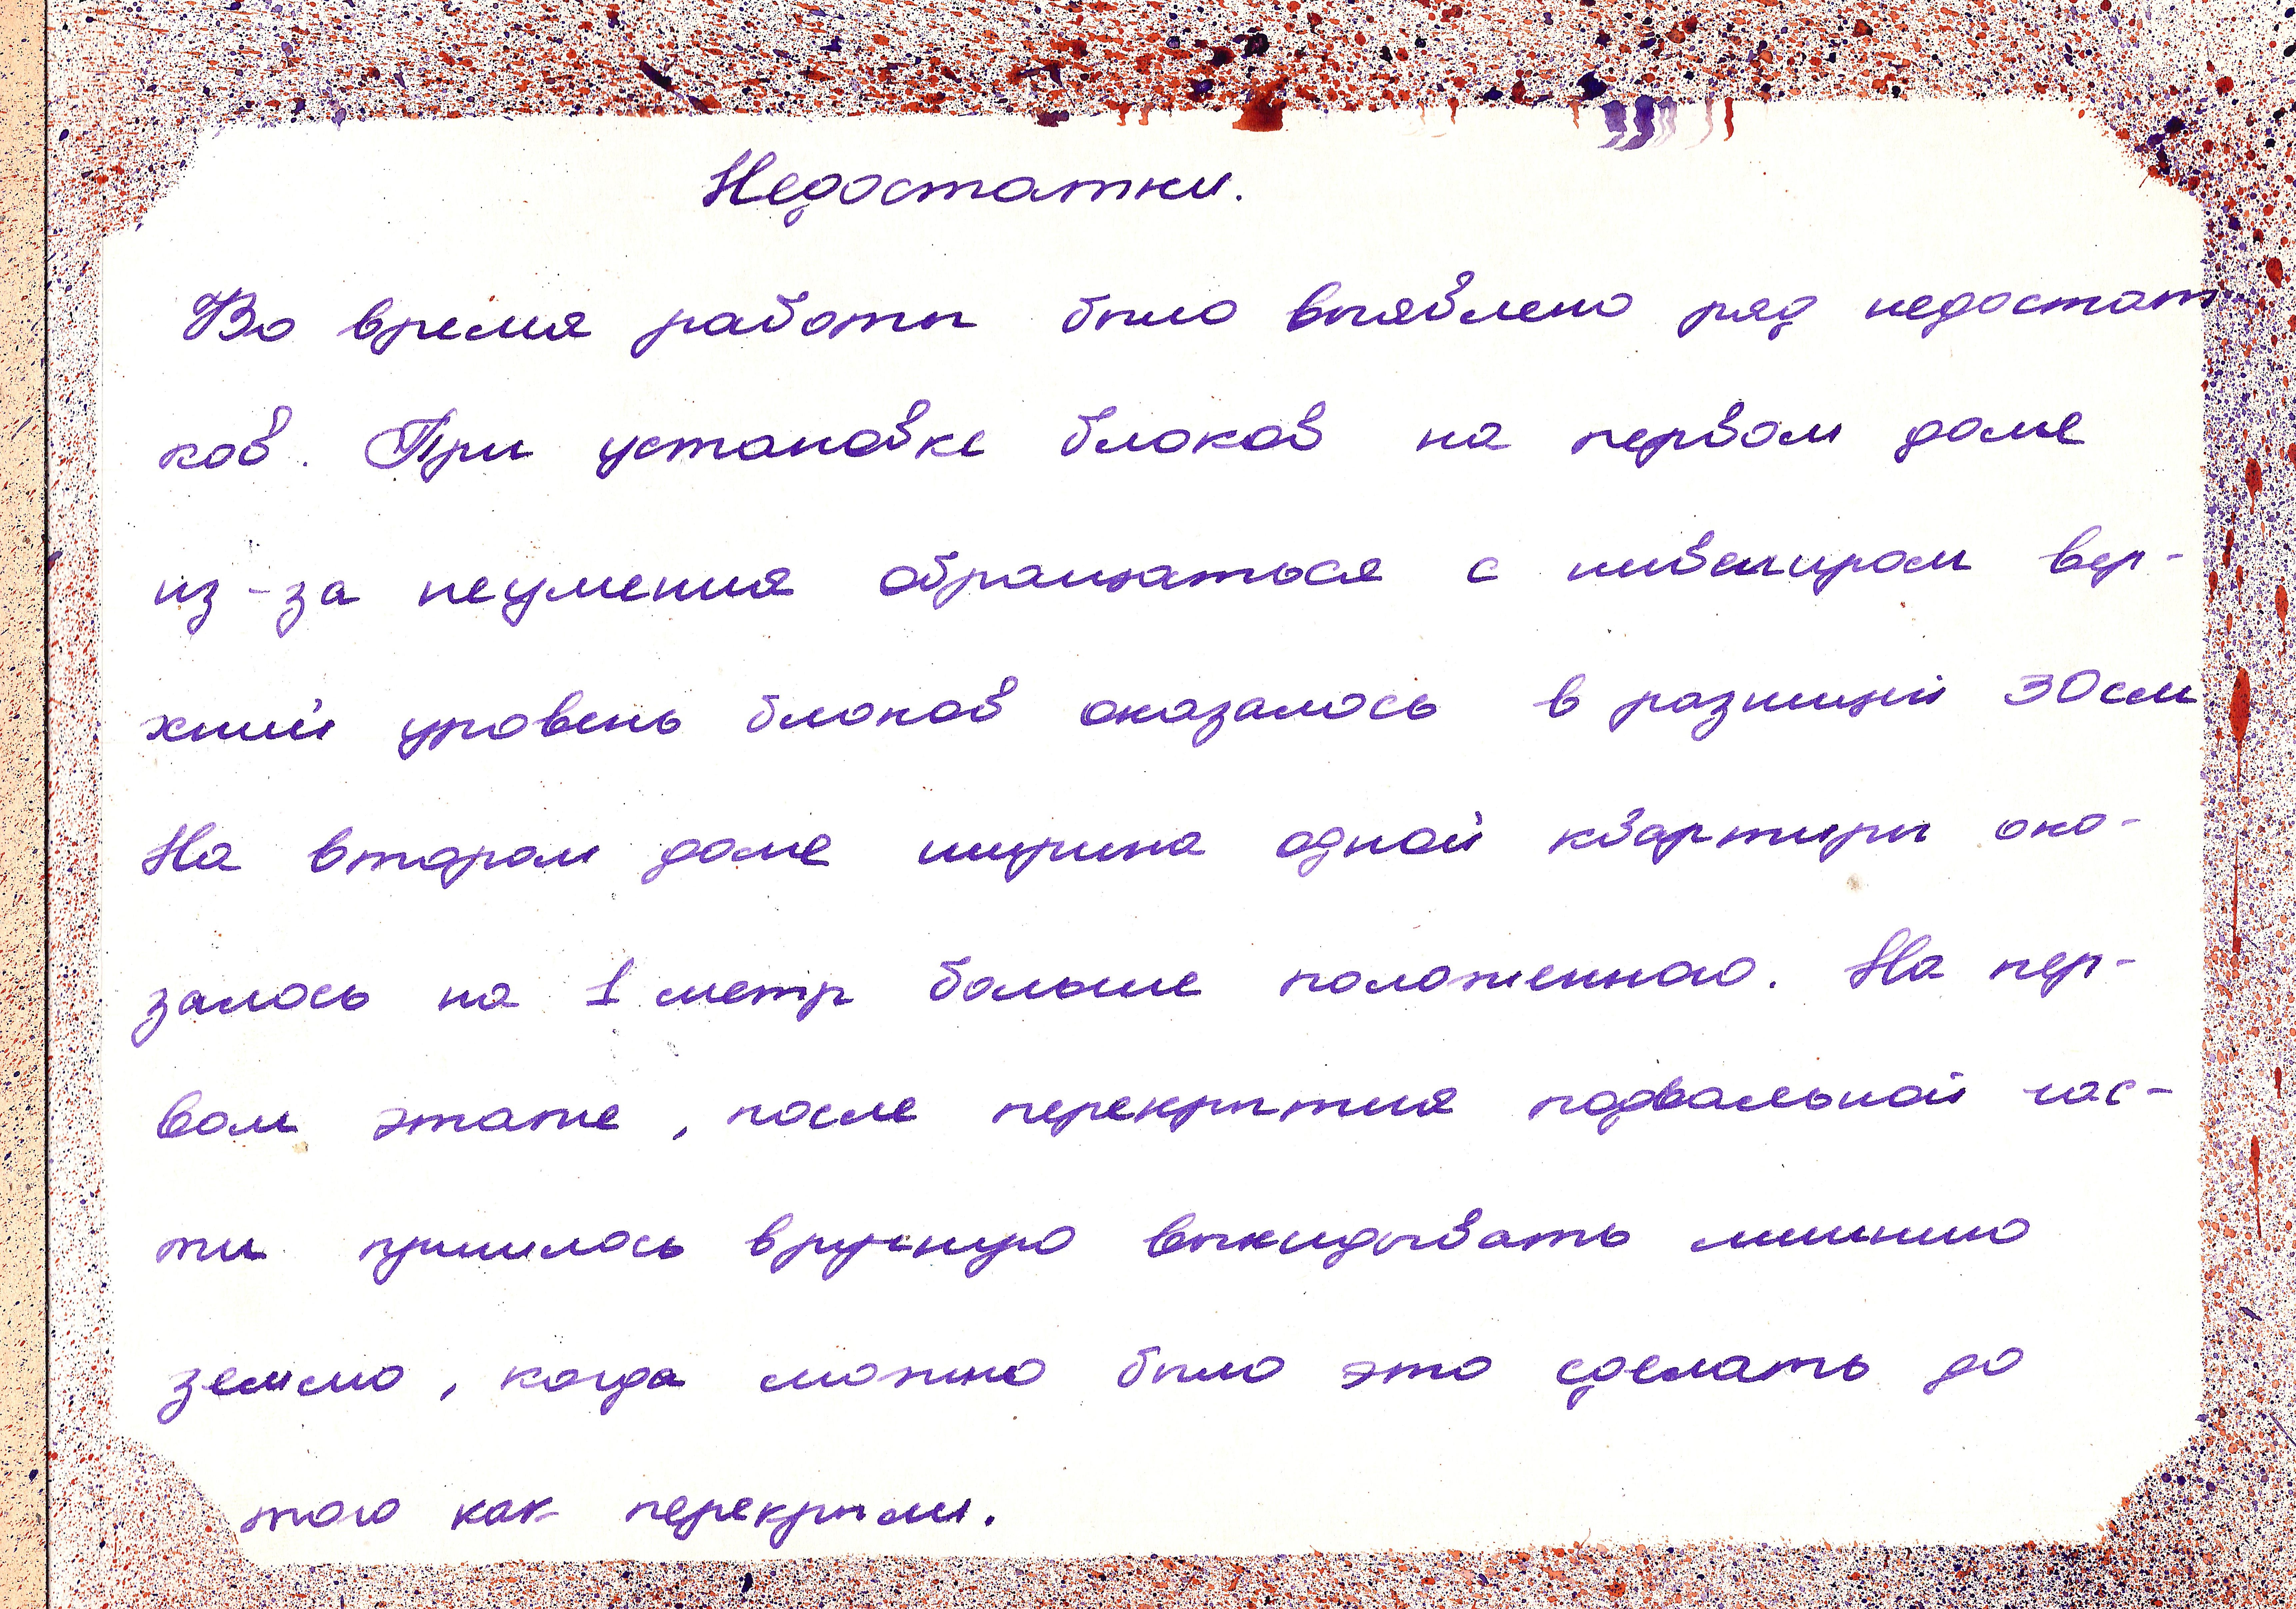 Недостатки.
Во время работы было выявлено ряд недостат
ков. При установке блоков на первом доме
из-за неумения обращаться с нивелиром вер-
хний уровень блоков оказалось в разницей 30см
На втором доме ширина одной квартиры ока-
залось на 1 метр больше положенного. На пер-
вом этаже, после перекрытия подвальной час-
ти пришлось вручную выкидывать лишнию
землю, когда можно было это сделать до
того как перекрыли.